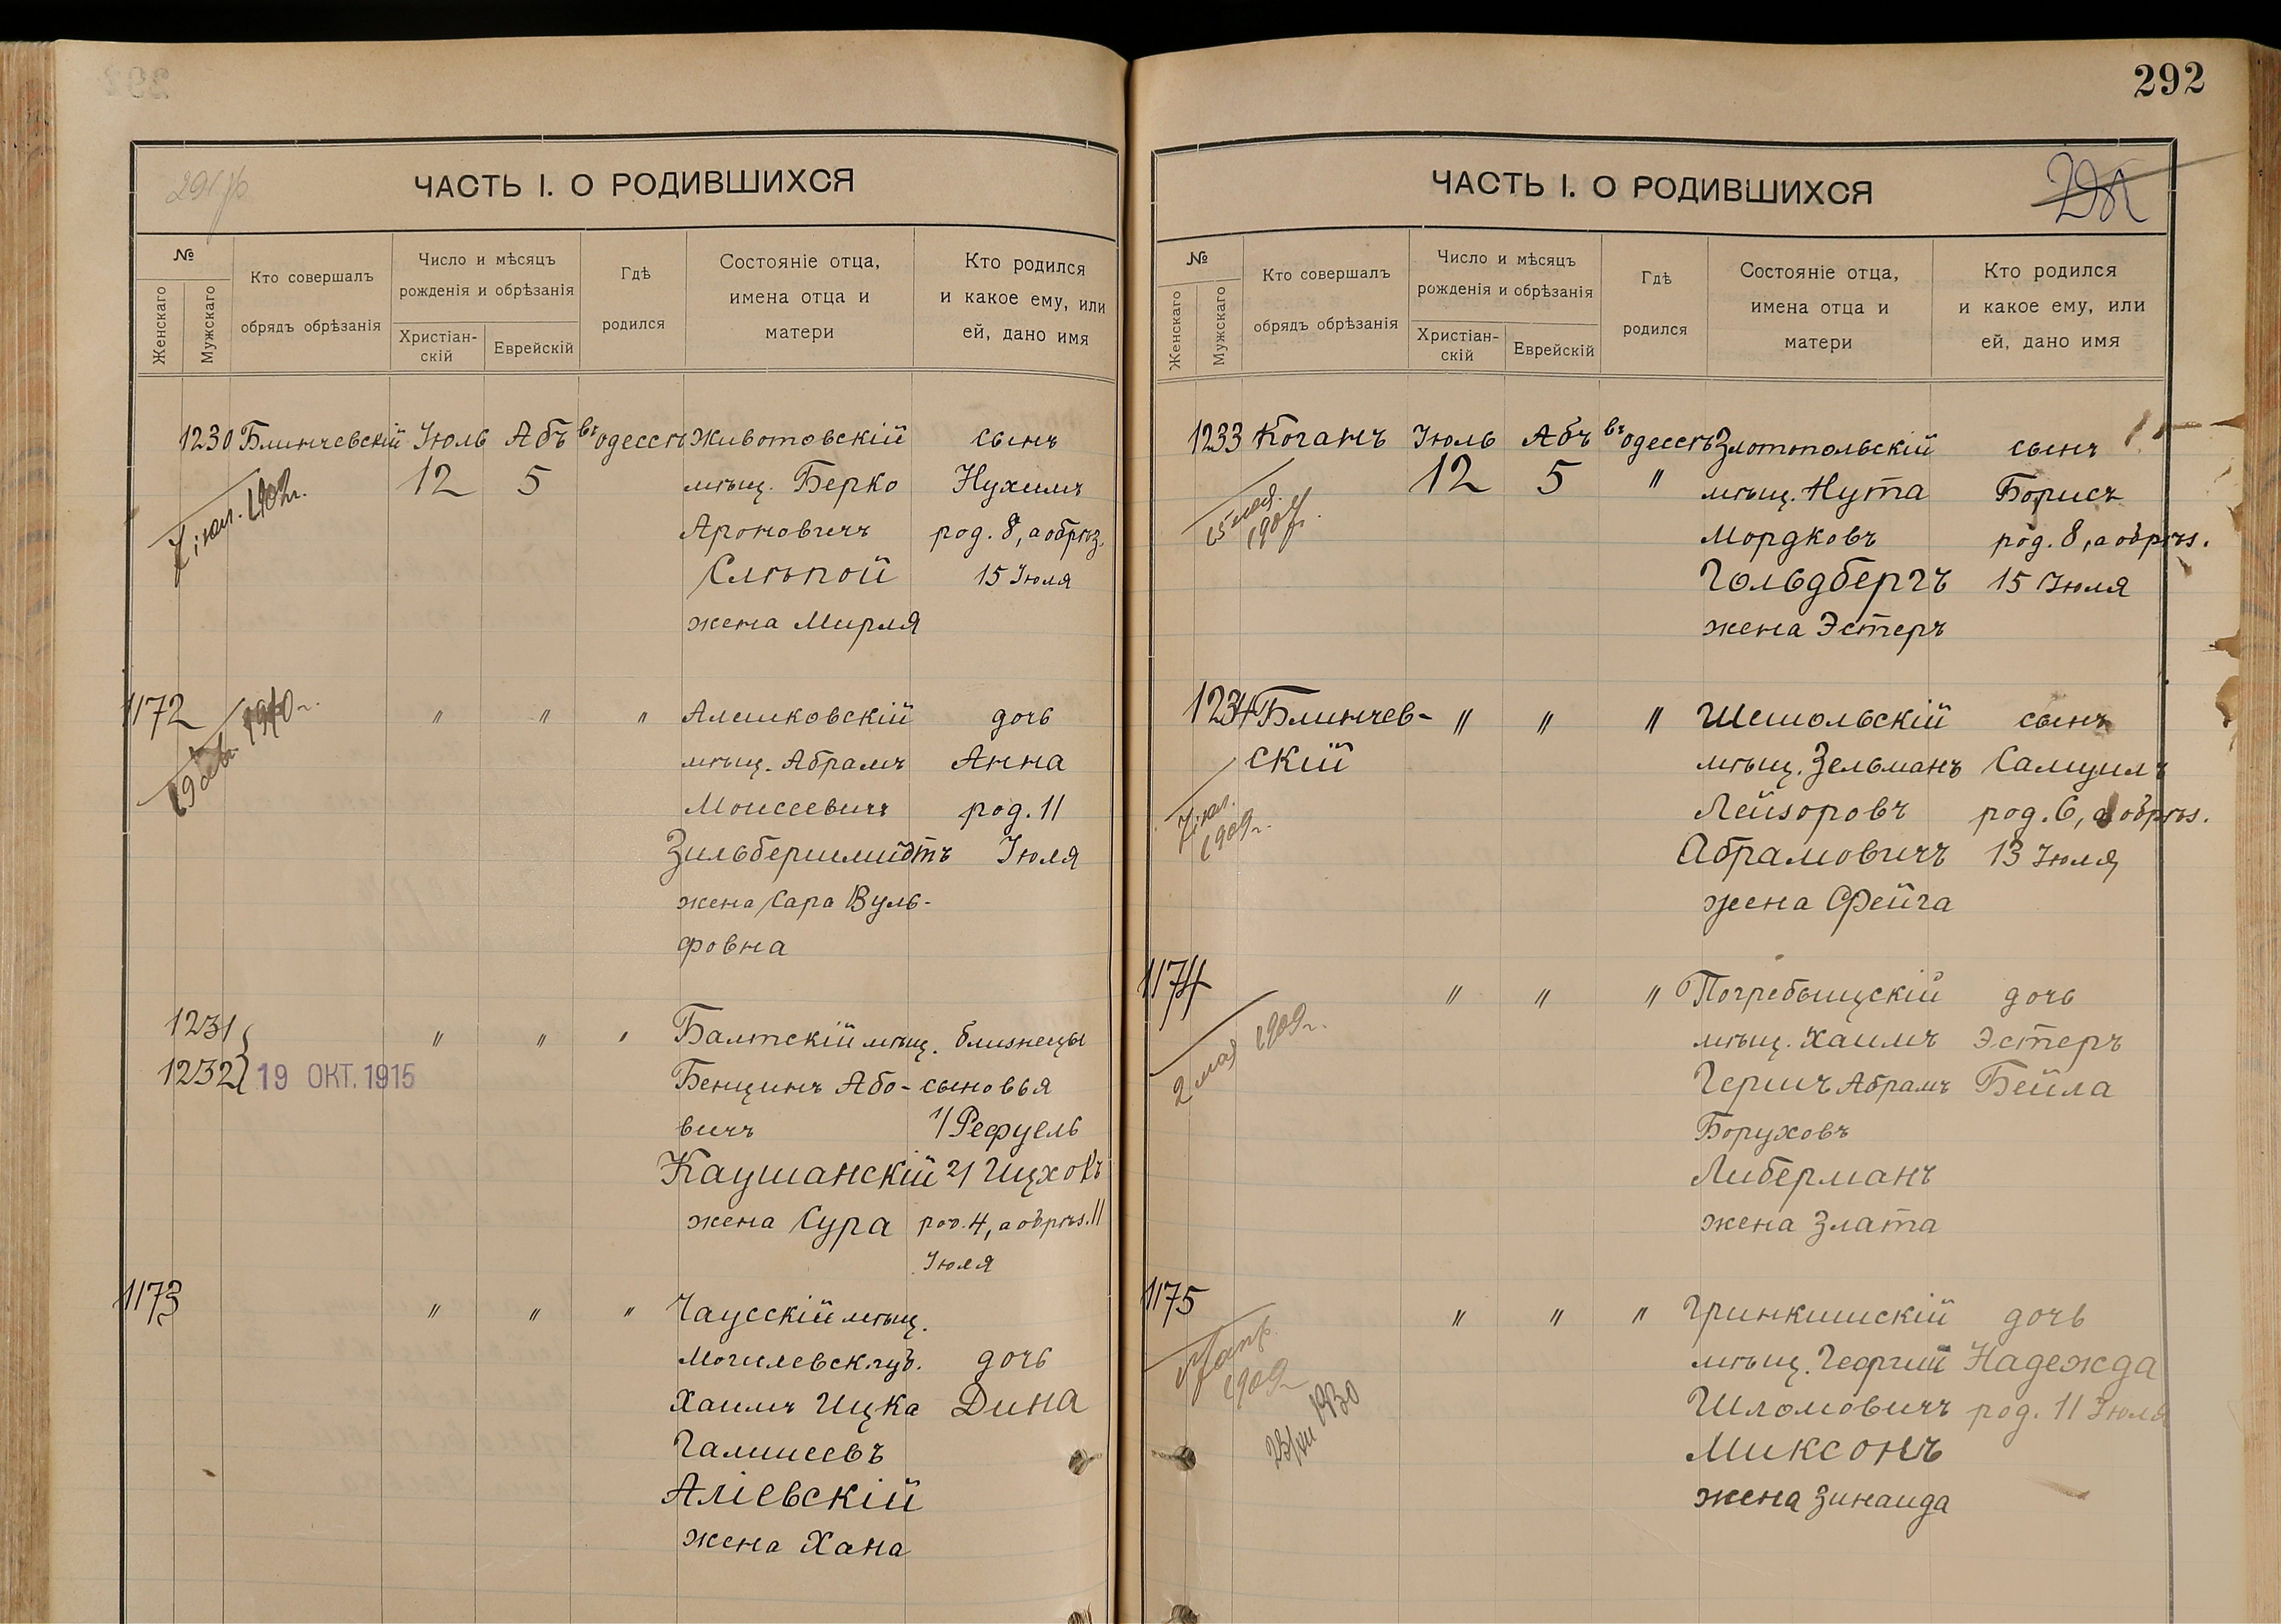 292
ЧАСТЬ I. О РОДИВШИХСЯ
№
Женскаго
Мужскаго
Кто совершалъ
обрядъ обрѣзанія
Число и мѣсяцъ
рожденія и обрѣзанія
Христіан-
скій
Еврейскій
Гдѣ
родился
Состояніе отца,
имена отца и
матери
Кто родился
и какое ему, или
ей, дано имя
1230 Блинчевскій Іюль Абъ въ Одессѣ Животовскій сынъ
12 5 мѣщ. Берко Нухимъ
Ароновичъ род. 8, а обрѣз.
Слѣпой 15 Іюля
жена Мирля
1172 " " " Алешковскій дочь
1910 г.
мѣщ. Абрамъ Анна
Моисеевичъ род. 11
Зильбершмидтъ Іюля
жена Сара Вуль-
фовна
1231
1232 19 ОКТ. 1915
" " " Балтскій мѣщ. близнецы
Бенционъ Або- сыновья
вичъ 1/ Рефуель
Каушанскій 2/ Ицхокъ
жена Сура род. 4, а обрѣз. 11
Іюля
1173 " " " Чаусскій мѣщ.
Могилевск. губ. дочь
Хаимъ Ицка Дина
Галишеевъ
Аліевскій
жена Хана
ЧАСТЬ I. О РОДИВШИХСЯ
№
Женскаго
Мужскаго
Кто совершалъ
обрядъ обрѣзанія
Число и мѣсяцъ
рожденія и обрѣзанія
Христіан-
скій
Еврейскій
Гдѣ
родился
Состояніе отца,
имена отца и
матери
Кто родился
и какое ему, или
ей, дано имя
1233 Коганъ Іюль Абъ въ Одессѣ Златопольскій сынъ
12 5 " мѣщ. Нута Борисъ
Мордковъ род. 8, а обрѣз.
Гольдбергъ 15 Іюля
жена Эстеръ
1234 Блинчев- " " " Шешольскій сынъ
скій мѣщ. Зельманъ Самуилъ
1909 г.
Лейзоровъ род. 6, а обрѣз.
Абрамовичъ 13 Іюля
жена Фейга
1174 " " " Погребыщскій дочь
2 мая 1909 г.
мѣщ. Хаимъ Эстеръ
Гершъ Абрамъ Бейла
Боруховъ
Либерманъ
жена Злата
1175 " " " Гринкишскій дочь
1909
мѣщ. Георгій Надежда
Шломовичъ род. 11 Іюля
Миксонъ
жена Зинаида
1930